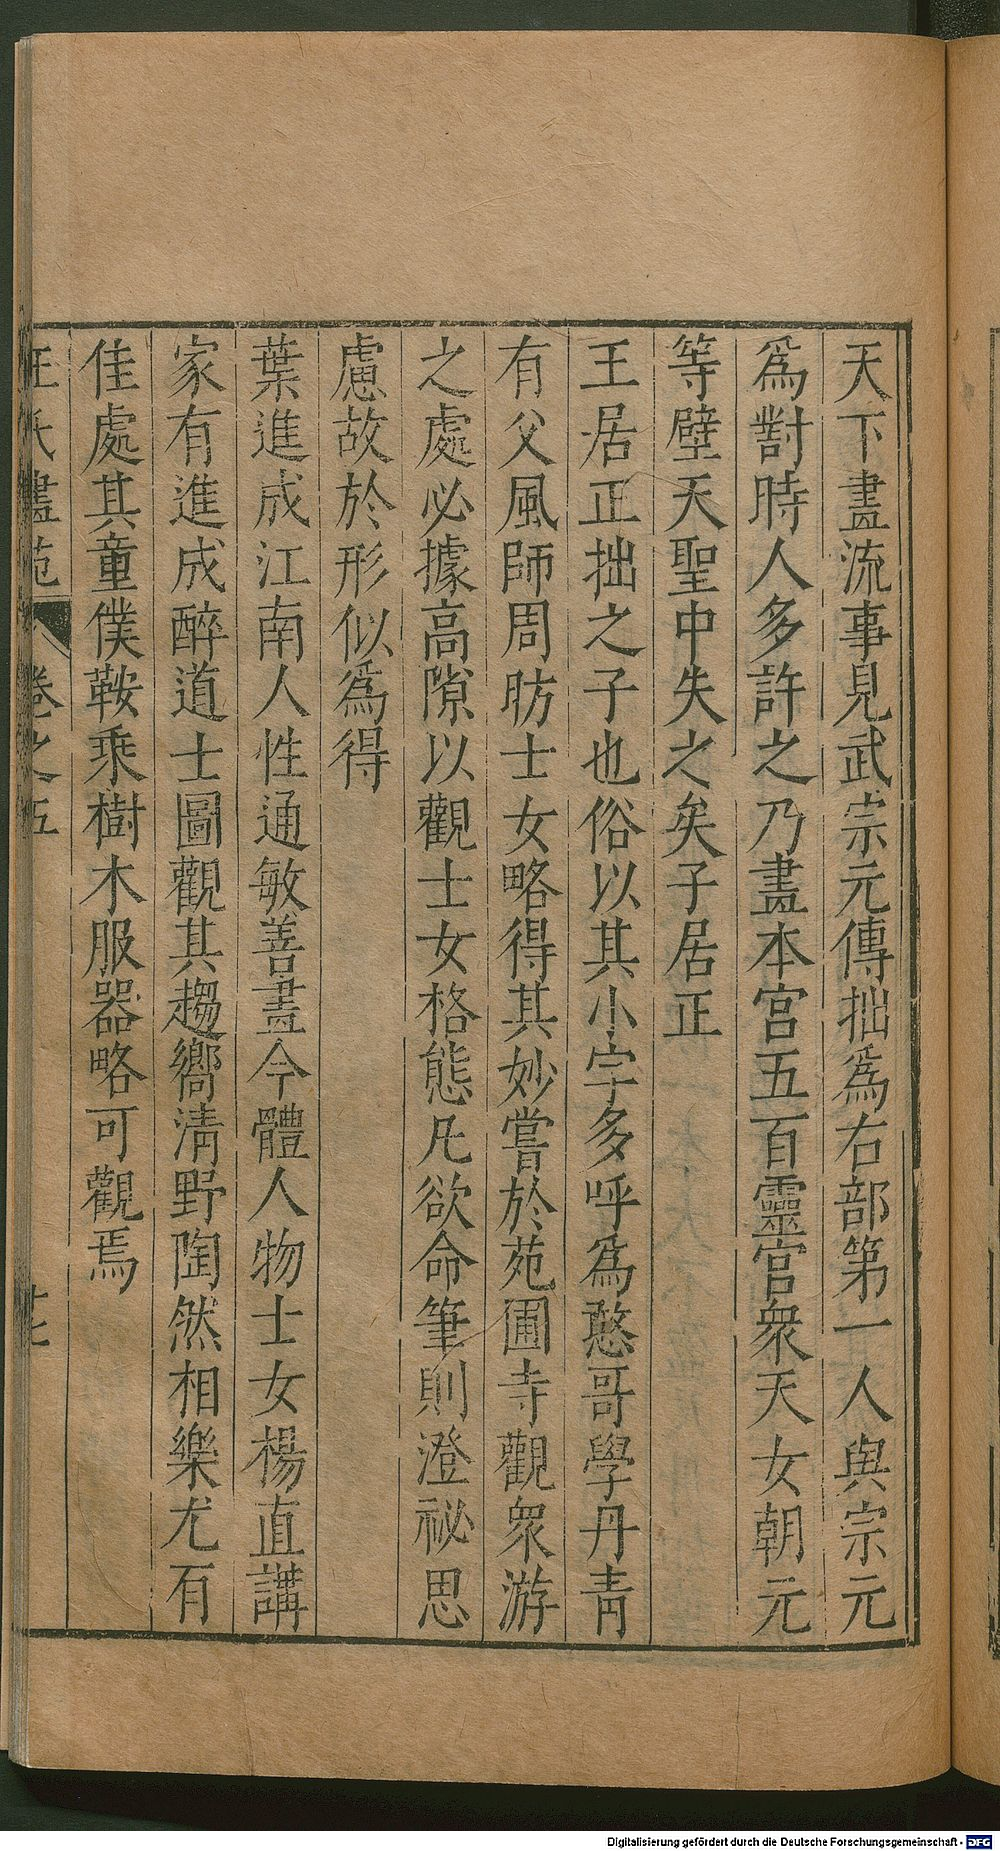 天下畫流事見武宗元傳拙爲右部第一人與宗元
爲對時人多許之乃畫本宮五百靈官衆天女朝元
等壁天聖中失之矣子居正
王居正拙之子也俗以其小字多呼爲憨哥學丹青
有父風師周昉士女略得其妙嘗於苑圃寺觀衆游
之處必據高隙以觀士女格態凡欲命筆則澄祕思
慮故於形似爲得
葉進成江南人性通敏善畫今體人物士女楊直講
家有進成醉道士圖觀其趨嚮清野陶然相樂尤有
佳處其童僕鞍乘樹木服器略可觀焉
王氏畫苑 卷之五 廿七
Digitalisierung gefördert durch die Deutsche Forschungsgemeinschaft - DFG